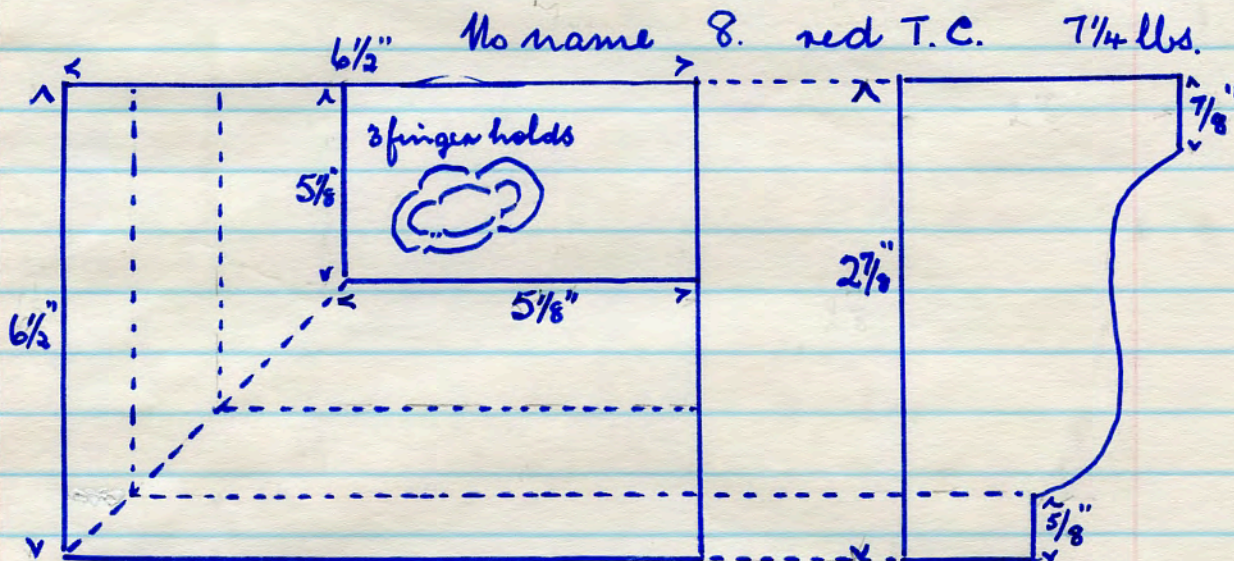 No name 8. red T.C. 7¼ lbs.
6½"
7/8"
3 finger holds
5⅛"
2⅞"
6½"
5⅛"
5/8"